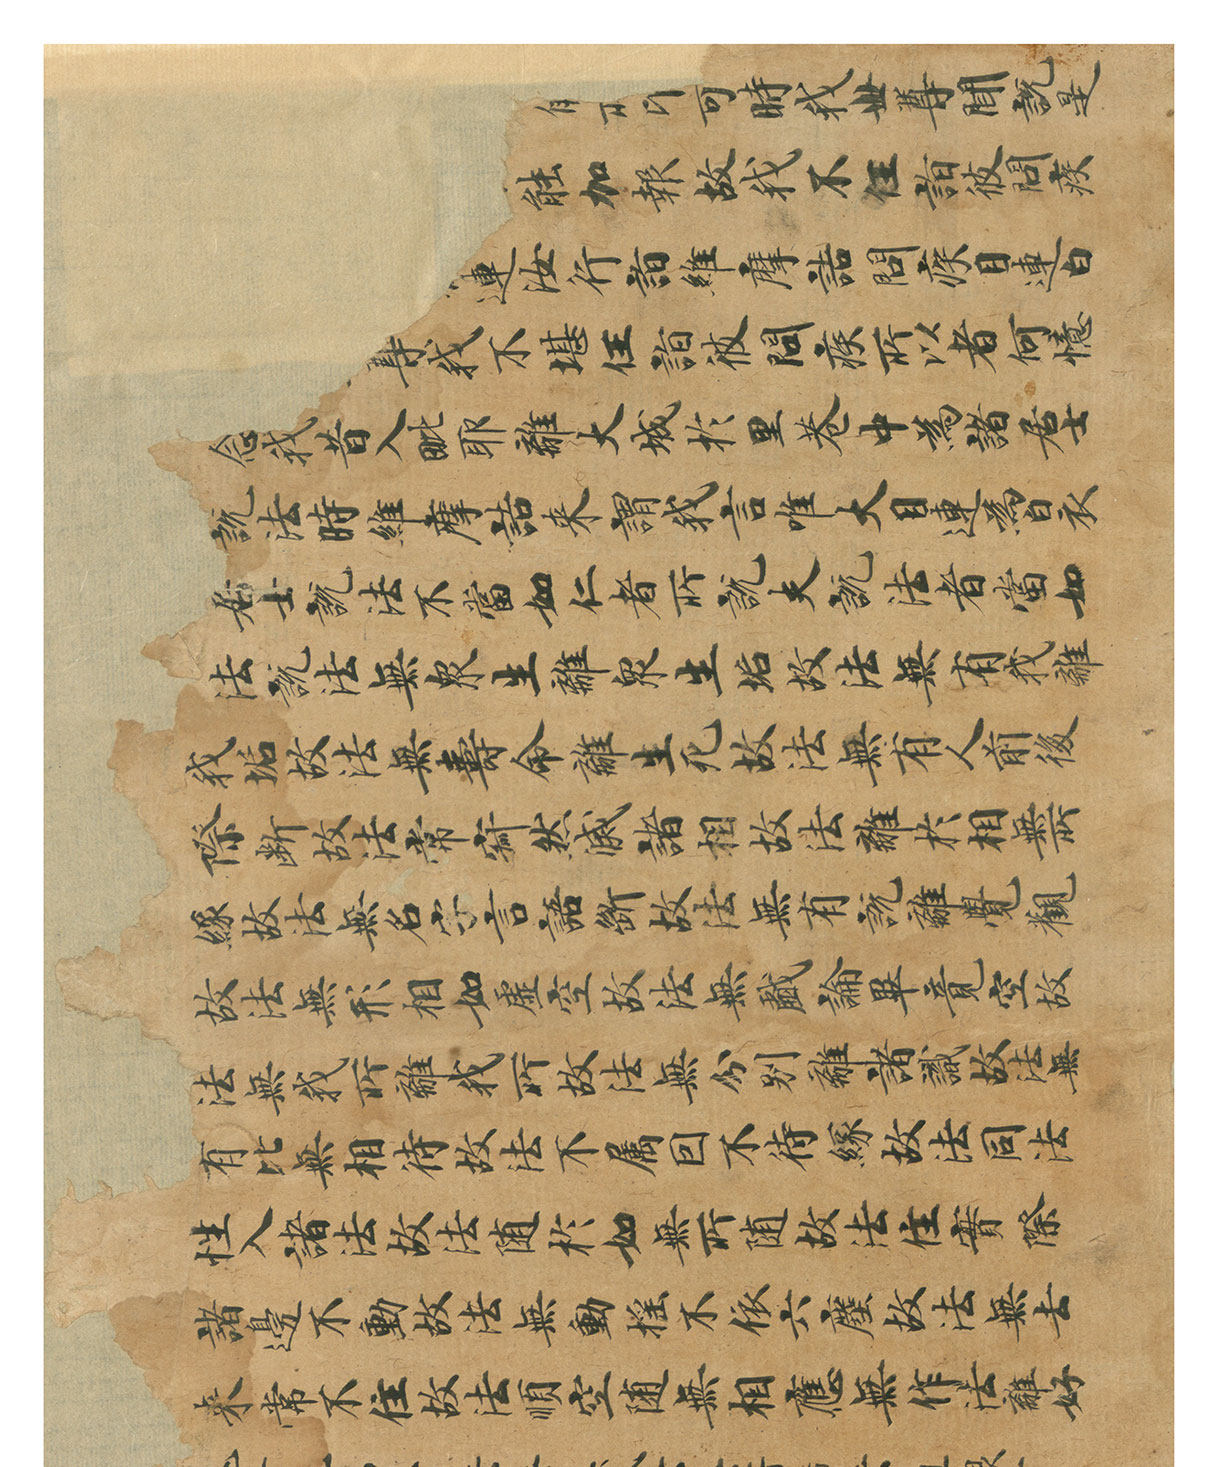 可時我世尊聞說是
能加報故我不任詣彼問疾
連汝行詣維摩詰問疾目連白
尊我不堪任詣彼問疾所以者何憶
念我昔入毗耶離大城於里巷中為諸居士
說法時維摩詰来謂我言唯大目連為白衣
居士說法不當如仁者所說夫說法者當如
法說法無衆生離衆生垢故法無有我離
我垢故法無壽命離生死故法無有人前後
際断故法常寂然滅諸相故法離於相無所
緣故法無名字言語斷故法無有說離覺觀
故法無形相如虛空故法無戲論畢竟空故
法無我所離我所故法無分別離諸識故法無
有比無相待故法不属因不待緣故法同法
性入諸法故法随於如無所随故法住實際
諸邊不動故法無動搖不依六塵故法無去
来常不住故法順空随無相應無作法離好